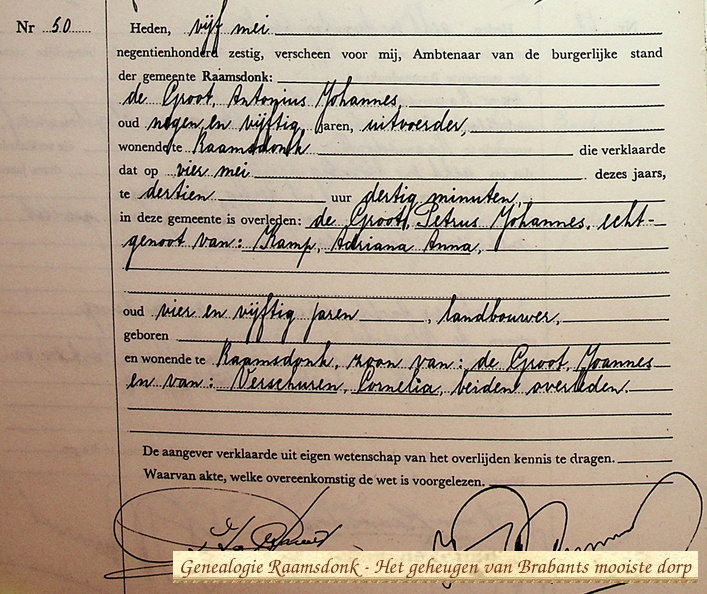 Nr 50
Heden, vijf mei
negentienhonderd zestig, verscheen voor mij, Ambtenaar van de burgerlijke stand
der gemeente Raamsdonk:
de Groot, Antonius Johannes,
oud negen en vijftig jaren, uitvoerder,
wonende te Raamsdonk die verklaarde
dat op vier mei dezes jaars,
te dertien uur dertig minuten,
in deze gemeente is overleden: de Groot, Petrus Johannes, echt-
genoot van: Kamp, Adriana Anna,
oud vier en vijftig jaren, landbouwer,
geboren
en wonende te Raamsdonk, zoon van: de Groot, Joannes
en van: Verschuren, Cornelia, beiden overleden.
De aangever verklaarde uit eigen wetenschap van het overlijden kennis te dragen.
Waarvan akte, welke overeenkomstig de wet is voorgelezen.
Genealogie Raamsdonk - Het geheugen van Brabants mooiste dorp